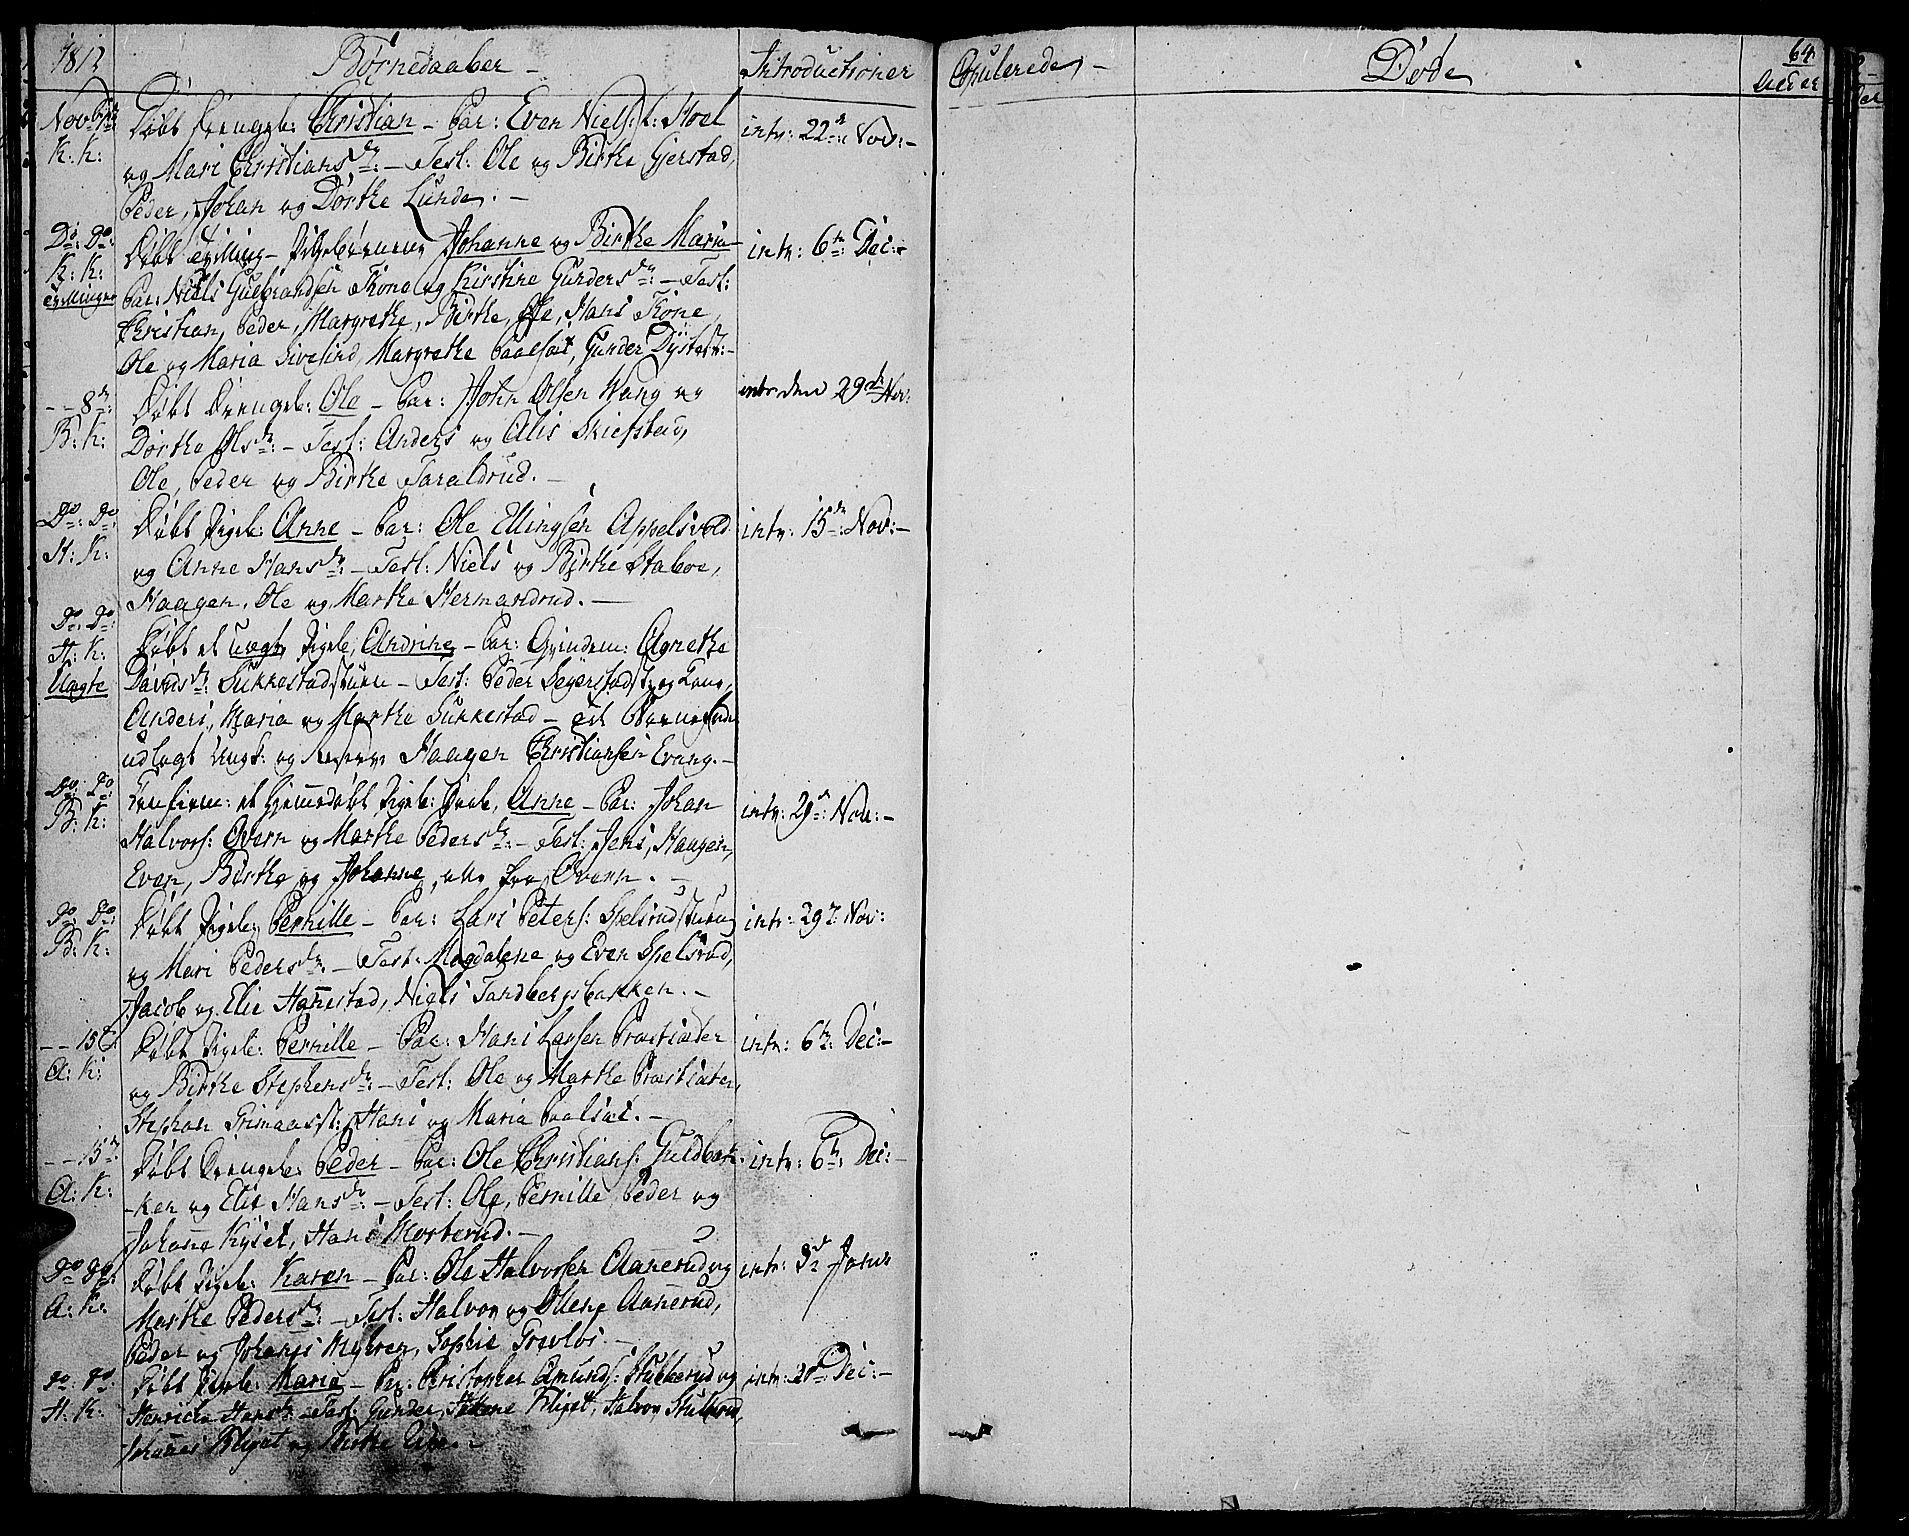 1812
Børnedaaber -
Introductioner
Copulerede, -
Døde
64
Nov:
K: K:
Døbt Drengeb: Christian - Par: Even Niels: t: Hoel
og Mari Christiansdr: - Test: Ole og Birthe Gjerstad,
Peder, Johan og Dorthe Lunde: -
intr: 22de Nov: -
Do: Do:
K: K:
Tvillinger
Døbt Tvilling- Pigebørnene Johanne og Birthe Maria
Par: Niels Gulbrandsen Trone og Kirstine Gundersdr: - Test:
Christian, Peder, Margrethe, Birthe, Ole, Hans Trone,
Ole og Maria Sivesind, Margrethe Paalsæt, Gunder Dyste: -
intr: 6te Dec: -
- - 8de:
B: K:
Døbt Drengeb: Ole - Par: John Olsen Wang og
Dorthe Olsdr: - Test: Anders og Alis Skiefstad,
Ole, Peder og Birthe Taraldrud. -
intr den 29de Nov:
Do: Do:
H: K:
Døbt Pigeb: Anne - Par: Ole Ellingsen Appelsvold
og Anne Hansdr: - Test: Niels og Birthe Staboe,
Haagen, Ole og Marthe Hermandrud. -
intr: 15de: Nov: -
Do: Do:
H: K:
Uægte
Døbt et uægte Pigeb: Andrine - Par: Qvindem: Agnethe
Davidsdr: Sukkestadstuen - Test: Peder Segerstadst: og Kone,
Anders, Maria og Marthe Sukkestad - til Barnefader
udlagt Ungk: og Haagen Christiansen Evang. -
Do: Do:
B: K:
Confirm: et hjemmedøbt Pigeb: Anne - Par: Johan
Halvors: Overn og Marthe Pedersdr: - Test: Jens, Haagen,
Even, Birthe og Johanne, alle fra Overn. -
intr: 29de Nov: -
Do: Do:
B: K:
Døbt Pigeb: Pernille - Par: Lars Peters: Spelsrudstuen
og Mari Pedersdr: - Test: Magdalene og Even Spelsrud,
Jacob og Elie Hannestad, Niels Sandbergsbakken. -
intr: 29de: Nov:
- - 15de
A: K:
Døbt Pigeb: Pernille - Par: Hans Larsen Præstsæter
og Birthe Stephensdr: - Test: Ole og Marthe Præstsæter,
Stephan Grimaasst: Hans og Maria Paalsæt. -
intr: 6te: Dec: -
- - 15de
A: K:
Døbt Drengeb: Peder - Par: Ole Christians: Guldbak-
-ken og Elie Hansdr: - Test: Ole, Pernille Peder og
Johanne Kyset, Hans Morterud. -
intr: 6te: Dec: -
Do: Do:
A: K:
Døbt Pigeb: Karen - Par: Ole Halvorsen Aannerud og
Marthe Pedersdr: - Test: Halvor og Ollene Aannerud,
Peder og Johannes Myhren, Sophie -
intr: 3de Janr
Do: Do:
H: K:
Døbt Pigeb: Maria - Par: Christopher Amunds: Stubberud og
Henriche Hansdr: - Test: Gunder, Klixet, Halvor Stubberud,
Johannes Klixet og Birthe
intr: 20de Dec: -